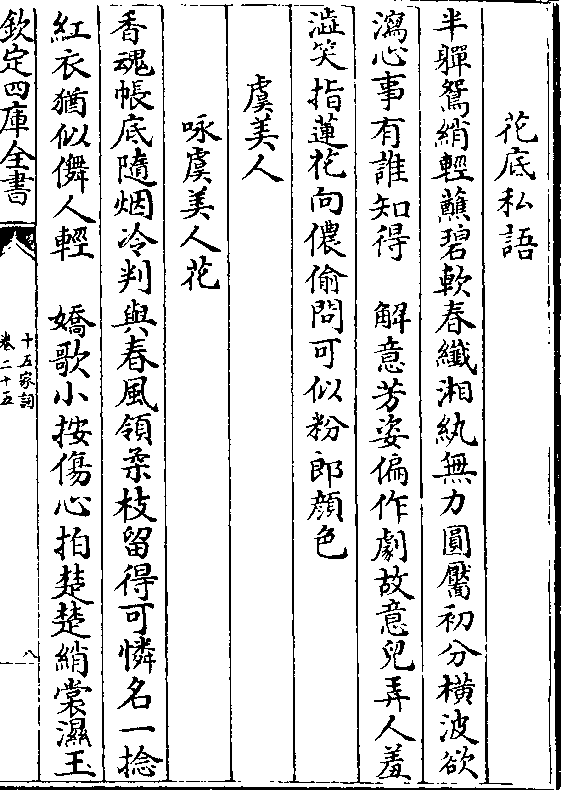 花底私語
半軃鴛綃輕蘸碧軟春纖湘紈無力圓靨初分橫波欲
瀉心事有誰知得　解意芳姿偏作劇故意兒弄人羞
澁笑指蓮花向儂偷問可似粉郎顔色
虞美人
咏虞美人花
香魂帳底隨烟冷判與春風領柔枝留得可憐名一捻
紅衣猶似儛人輕　嬌歌小按傷心拍楚楚綃裳濕玉
欽定四庫全書
十五家詞
卷二十五
八